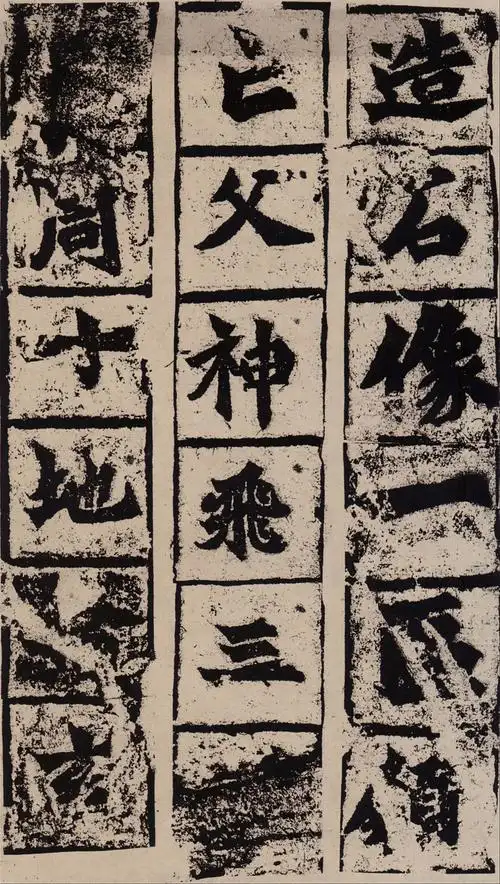 造石像一區願
亡父神飛三
周十地玄